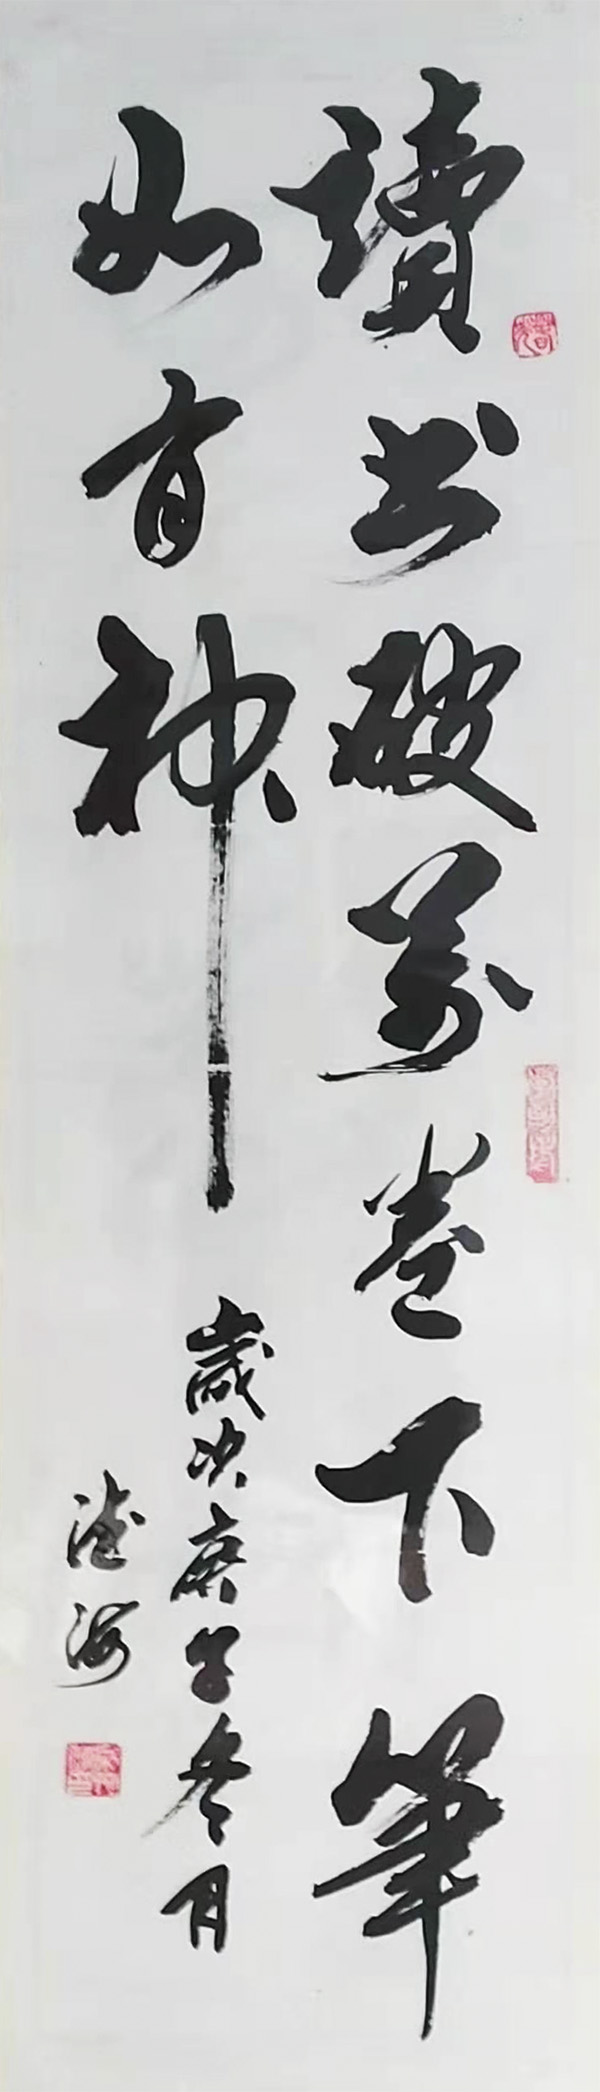 讀书破萬卷下筆
如有神
歲次庚子冬月
德海